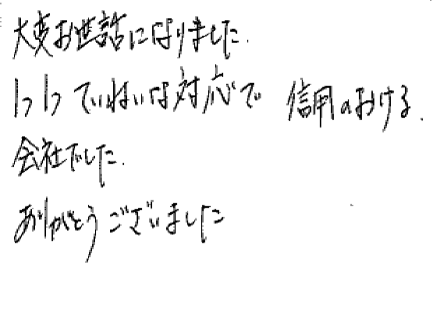 大変お世話になりました.
1つ1つていねいな対応で 信用のおける.
会社でした.
ありがとうございました